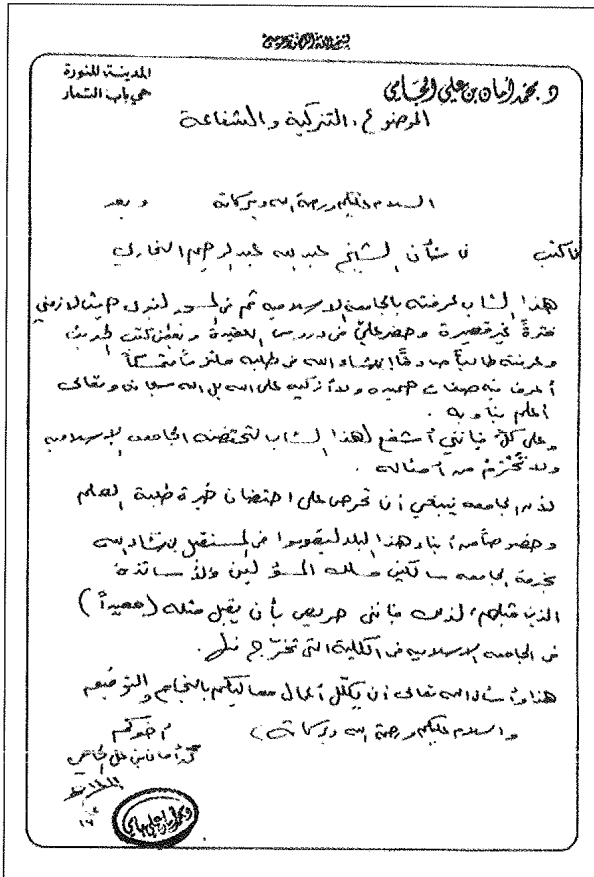 بسم الله الرحمن الرحيم
د. محمد أمان بن علي الجامي
المدينة المنورة
حي باب التمار
الموضوع: التزكية والشفاعة
السلام عليكم ورحمة الله وبركاته وبعد
فأكتب في شأن الشيخ عبد الله عبد الرحيم البخاري
هذا الشاب عرفته بالجامعة الإسلامية ثم في المسجد النبوي حيث لازمني
فترة غير قصيرة وحضر عليّ في دروس العقيدة وبعض كتب الحديث
وعرفته طالباً صادقاً إن شاء الله في طلبه ملتزماً متمسكاً
أعرف فيه صفات حميده ولا أزكيه على الله بل الله سبحانه وتعالى
أعلم بنا وبه .
وعلى كلٍّ فإنني أشفع لهذا الشاب لتحتضنه الجامعه الإسلاميه
ولا تُحْرَمْ من أمثاله .
لأن الجامعه ينبغي أن تحرص على احتضان خيرة طلبة العلم
وخصوصاً من أبناء هذا البلد ليقوموا في المستقبل إن شاء الله
بخدمة الجامعه سالكين مسلك المسؤلين والأساتذة
الذين قبلهم، لذلك فإنني حريص بأن يقبل مثله (معيداً)
في الجامعه الإسلاميه في الكلية التي تخرّج منها.
هذا وأسأل الله تعالى أن يكلّل أعمال معاليكم بالنجاح والتوفيق
والسلام عليكم ورحمة الله وبركاته،
أخوكم
محمد أمان بن علي الجامي
محمد أمان علي جامي